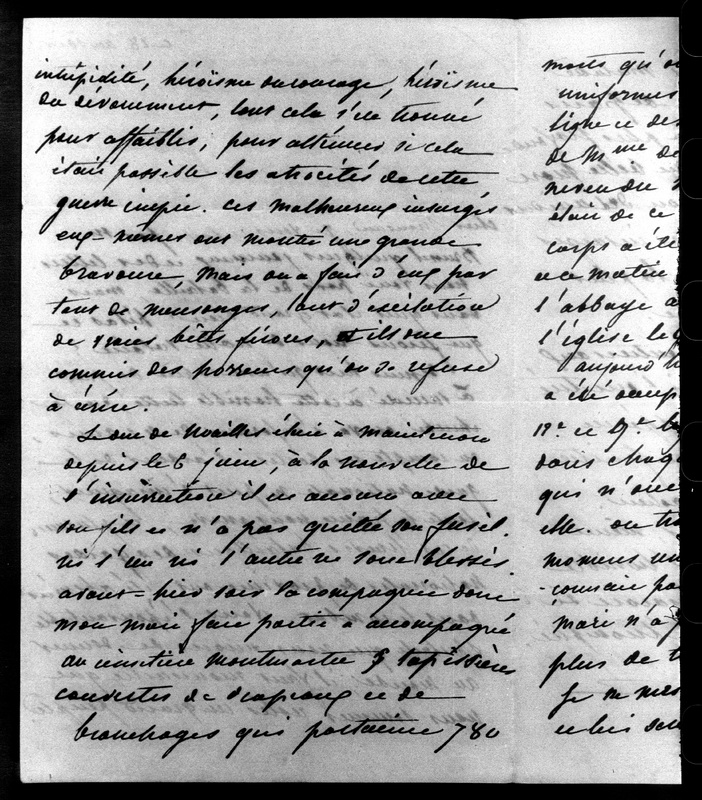 intrépidité, héroïsme du courage, héroïsme
du dévouement, tout cela s'est trouvé
pour affaiblir, pour atténuer si cela
était possible les atrocités de cette
guerre impie. ces malheureux insurgés
eux-mêmes ont montré une grande
bravoure, mais on a fait d'eux par
tant de mensonges, tant d'excitation
de vraies bêtes féroces, et ils ont
commis des horreurs qu'on se refuse
à croire.
Le duc de Noailles était à Maintenon
depuis le 6 juin, à la nouvelle de
l'insurrection il est accouru avec
son fils et n'a pas quitté son fusil.
ni l'un ni l'autre ne sont blessés.
avant-hier soir la compagnie dont
mon mari fait partie a accompagné
au cimetière montmartre 5 tapissières
couvertes de drapeaux et de
branchages qui portaient 780
morts qu'o
uniformes
ligne et des
de Mme de
neveu du
était de ce
corps a été
et ce matin
l'abbaye a
l'église le
aujourd'h
a été occup
11e et 9e
dans chaq
qui n'ont
elle. on
momens un
-connaie pa
mari n'a
plus de
Je ne
et lui